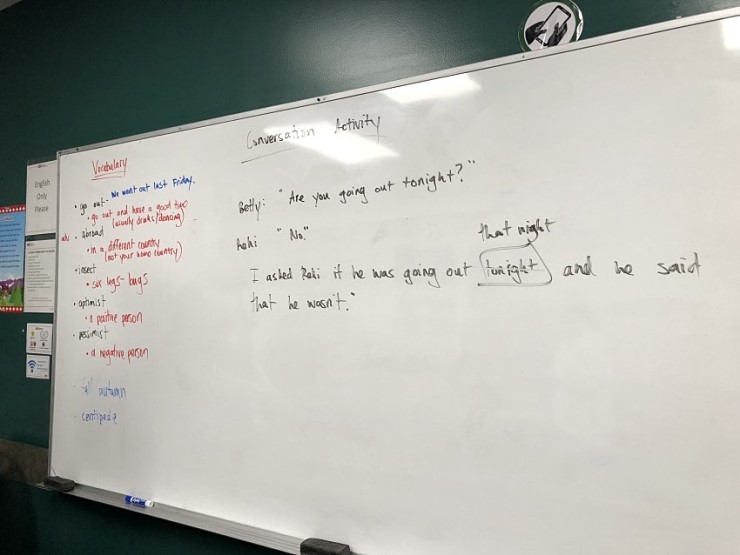 English
Only
Please
Vocabulary
• go out - We went out last Friday.
• go out and have a good type
(usually drinks/dancing)
• abroad
• in a different country
(not your home country)
• insect
• six legs - bugs
• optimist
• a positive person
• pessimist
• a negative person
- fall autumn
- centipede
Conversation Activity
Betty: "Are you going out tonight?"
"No."
that night
I asked Roki if he was going out tonight and he said
that he wasn't."